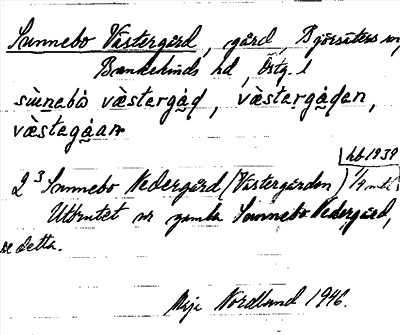 Sunnebo Västergård, gård, Björsäters sn,
Bankekinds hd, Östg. l
sùnabò västergå̀d, västergå̀dan,
västagå̀an
hb 1939
2³ Sunnebo Nedergård (Västergården) 1/4 mtl
Utbrutet ur gamla Sunnebo Nedergård,
se detta.
Nordlund 1946.